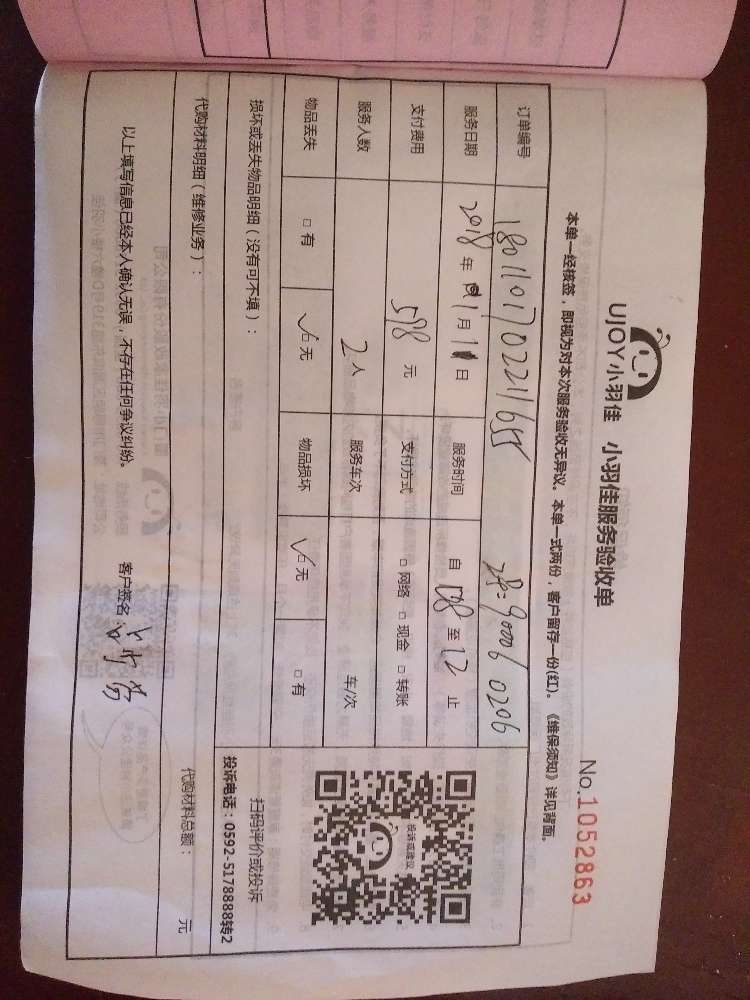 UJOY小羽佳 小羽佳服务验收单
No.1052863
本单一经核签，即视为对本次服务验收无异议。本单一式两份，客户留存一份(红)。《维保须知》详见背面。
订单编号 1801101702211655
服务日期 2018年1月11日 服务时间 自 8 至 12 止
支付费用 598 元 支付方式 □ 网络 □ 现金 □ 转账
服务人数 2人 服务车次 车/次
物品丢失 □ 有 ✓□ 无 物品损坏 ✓□ 无 □ 有
投诉或建议
扫码评价或投诉
投诉电话：0592-5178888转2
损坏或丢失物品明细（没有可不填）：
代购材料明细（维修业务）： 代购材料总额： 元
以上填写信息已经本人确认无误，不存在任何争议纠纷。 客户签名